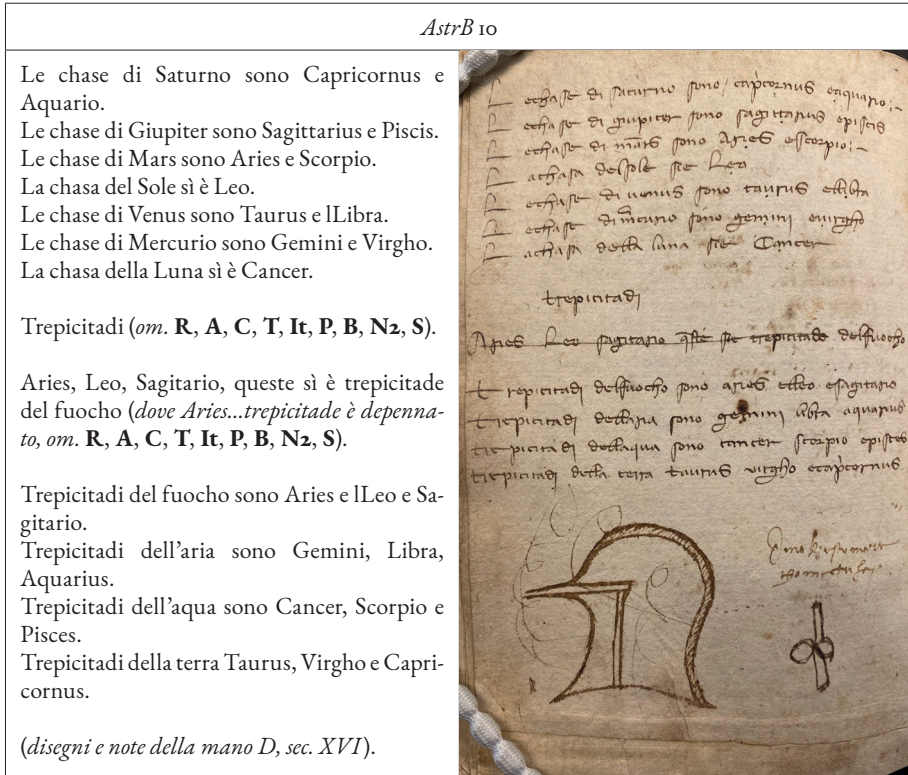 AstrB 10
Le chase di Saturno sono Capricornus e
Aquario.
Le chase di Giupiter sono Sagittarius e Piscis.
Le chase di Mars sono Aries e Scorpio.
La chasa del Sole sì è Leo.
Le chase di Venus sono Taurus e lLibra.
Le chase di Mercurio sono Gemini e Virgho.
La chasa della Luna sì è Cancer.
Trepicitadi (om. R, A, C, T, It, P, B, N2, S).
Aries, Leo, Sagitario, queste sì è trepicitade
del fuocho (dove Aries...trepicitade è depenna-
to, om. R, A, C, T, It, P, B, N2, S).
Trepicitadi del fuocho sono Aries e lLeo e Sa-
gitario.
Trepicitadi dell'aria sono Gemini, Libra,
Aquarius.
Trepicitadi dell'aqua sono Cancer, Scorpio e
Pisces.
Trepicitadi della terra Taurus, Virgho e Capri-
cornus.
(disegni e note della mano D, sec. XVI).
Lechase di saturno sono capcornus eaquario
Lechase di giupiter sono sagittarius episcis
Lechase di mars sono Aries escorpio
Lachasa delsole sie Leo
Lechase di venus sono taurus ellibra
Lechase di mcurio sono gemini evirgho
Lachasa della luna sie Cancer
trepicitadi
Aries Leo sagitario qste sie trepicitade delfuocho
trepicitadi delfuocho sono aries elleo esagitario
trepicitadi dellaria sono gemini libra aquarius
trepicitadi dellaqua sono cancer scorpio episces
trepicitadi della terra taurus virgho ecapcornus